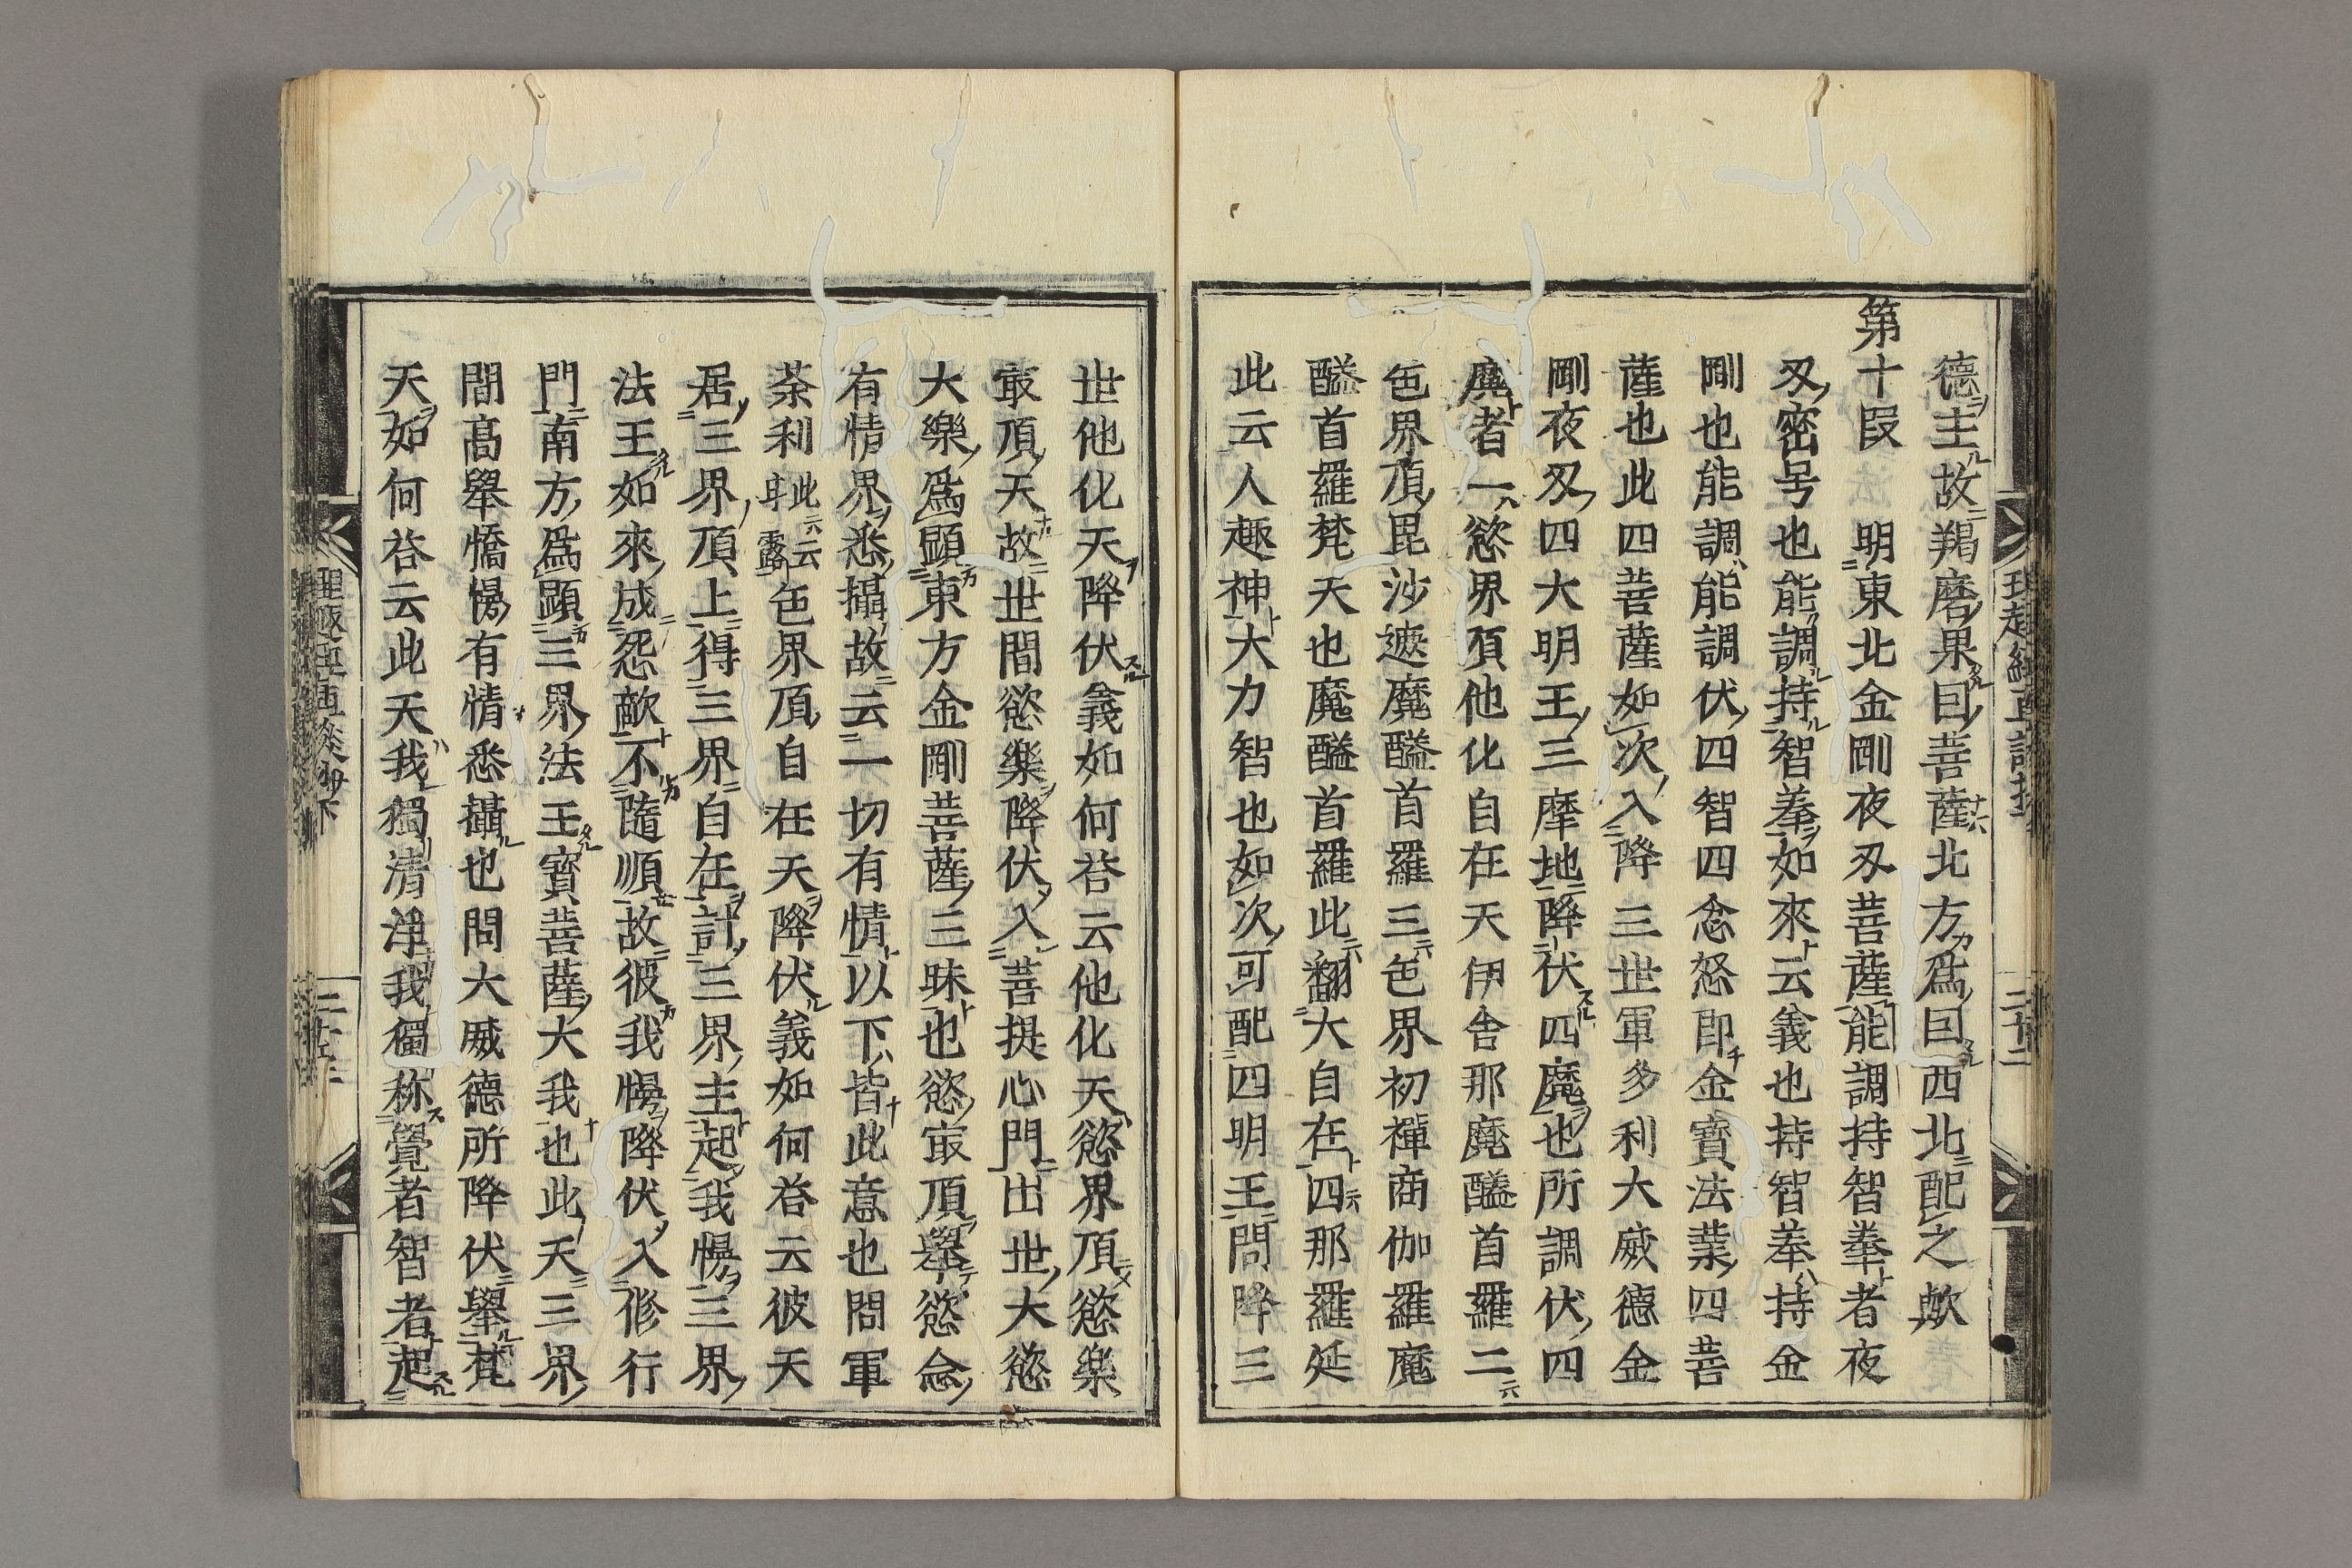 德主故羯磨果囙菩薩北方爲囙西北配之歟
第十段 明東北金剛夜叉菩薩能調持智拳者夜
叉密号也能調持智拳如來云義也持智拳持金
剛也能調能調伏四智四念怒即金寶法業四菩
薩也此四菩薩如次入降三世軍多利大威德金
剛夜叉四大明王三摩地降伏四魔也所調伏四
魔者一慾界頂他化自在天伊舍那魔醯首羅二
色界頂毘沙遮魔醯首羅三色界初禪商伽羅魔
醯首羅梵天也魔醯首羅此翻大自在四那羅延
此云人趣神大力智也如次可配四明王問降三
世他化天降伏義如何答云他化天慾界頂慾樂
㝡頂天故世間慾樂降伏入菩提心門出世大慾
大樂爲顕東方金剛菩薩三昧也慾㝡頂擧慾念
有情界悉攝故云一切有情以下皆此意也問軍
荼利此云甘露色界頂自在天降伏義如何答云彼天
居三界頂上得三界自在計三界主起我慢三界
法王如來成怨敵不隨順故彼我慢降伏入修行
門南方爲顕三界法王寳菩薩大我也此天三界
間髙擧憍慢有情悉攝也問大威德所降伏擧梵
天如何答云此天我獨清淨我獨称覺者智者起